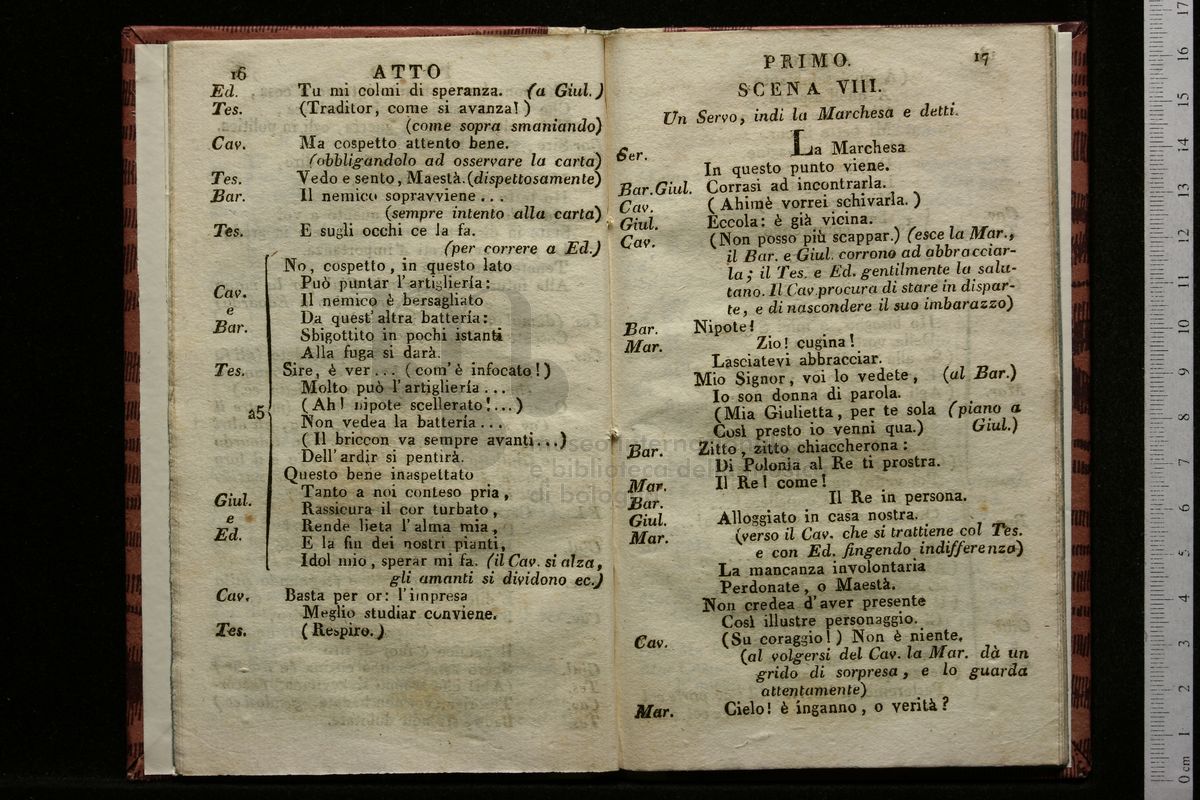 16 ATTO
Ed. Tu mi colmi di speranza. (a Giul.)
Tes. (Traditor, come si avanza!)
(come sopra smaniando)
Cav. Ma cospetto attento bene.
(obbligandolo ad osservare la carta)
Tes. Vedo e sento, Maestà. (dispettosamente)
Bar. Il nemico sopravviene ...
(sempre intento alla carta)
Tes. E sugli occhi ce la fa.
(per correre a Ed.)
No, cospetto, in questo lato
Può puntar l'artiglierìa:
Cav. Il nemico è bersagliato
e Da quest'altra batterìa:
Bar. Sbigottito in pochi istanti
Alla fuga si darà.
Tes. Sire, è ver... (com'è infocato!)
Molto può l'artiglierìa ...
à5 (Ah! nipote scellerato!...)
Non vedea la batterìa ...
(Il briccon va sempre avanti...)
Dell'ardir si pentirà.
Questo bene inaspettato
Giul. Tanto a noi conteso pria,
e Rassicura il cor turbato,
Ed. Rende lieta l'alma mia,
E la fin dei nostri pianti,
Idol mio, sperar mi fa. (il Cav. si alza,
gli amanti si dividono ec.)
Cav. Basta per or: l'impresa
Meglio studiar conviene.
Tes. (Respiro.)
PRIMO. 17
SCENA VIII.
Un Servo, indi la Marchesa e detti.
Ser. La Marchesa
In questo punto viene.
Bar. Giul. Corrasi ad incontrarla.
Cav. (Ahimè vorrei schivarla.)
Giul. Eccola: è già vicina.
Cav. (Non posso più scappar.) (esce la Mar.,
il Bar. e Giul. corrono ad abbracciar-
la; il Tes. e Ed. gentilmente la salu-
tano. Il Cav. procura di stare in dispar-
te, e di nascondere il suo imbarazzo)
Bar. Nipote!
Mar. Zio! cugina!
Lasciatevi abbracciar.
Mio Signor, voi lo vedete, (al Bar.)
Io son donna di parola.
(Mia Giulietta, per te sola (piano a
Così presto io venni qua.) Giul.)
Bar. Zitto, zitto chiaccherona:
Di Polonia al Re ti prostra.
Mar. Il Re! come!
Bar. Il Re in persona.
Giul. Alloggiato in casa nostra.
Mar. (verso il Cav. che si trattiene col Tes.
e con Ed. fingendo indifferenza)
La mancanza involontaria
Perdonate, o Maestà.
Non credea d'aver presente
Così illustre personaggio.
Cav. (Su coraggio!) Non è niente.
(al volgersi del Cav. la Mar. dà un
grido di sorpresa, e lo guarda
attentamente)
Mar. Cielo! è inganno, o verità?
museo internazionale
e biblioteca della
di bologna
0 cm 1 2 3 4 5 6 7 8 9 10 11 12 13 14 15 16 17